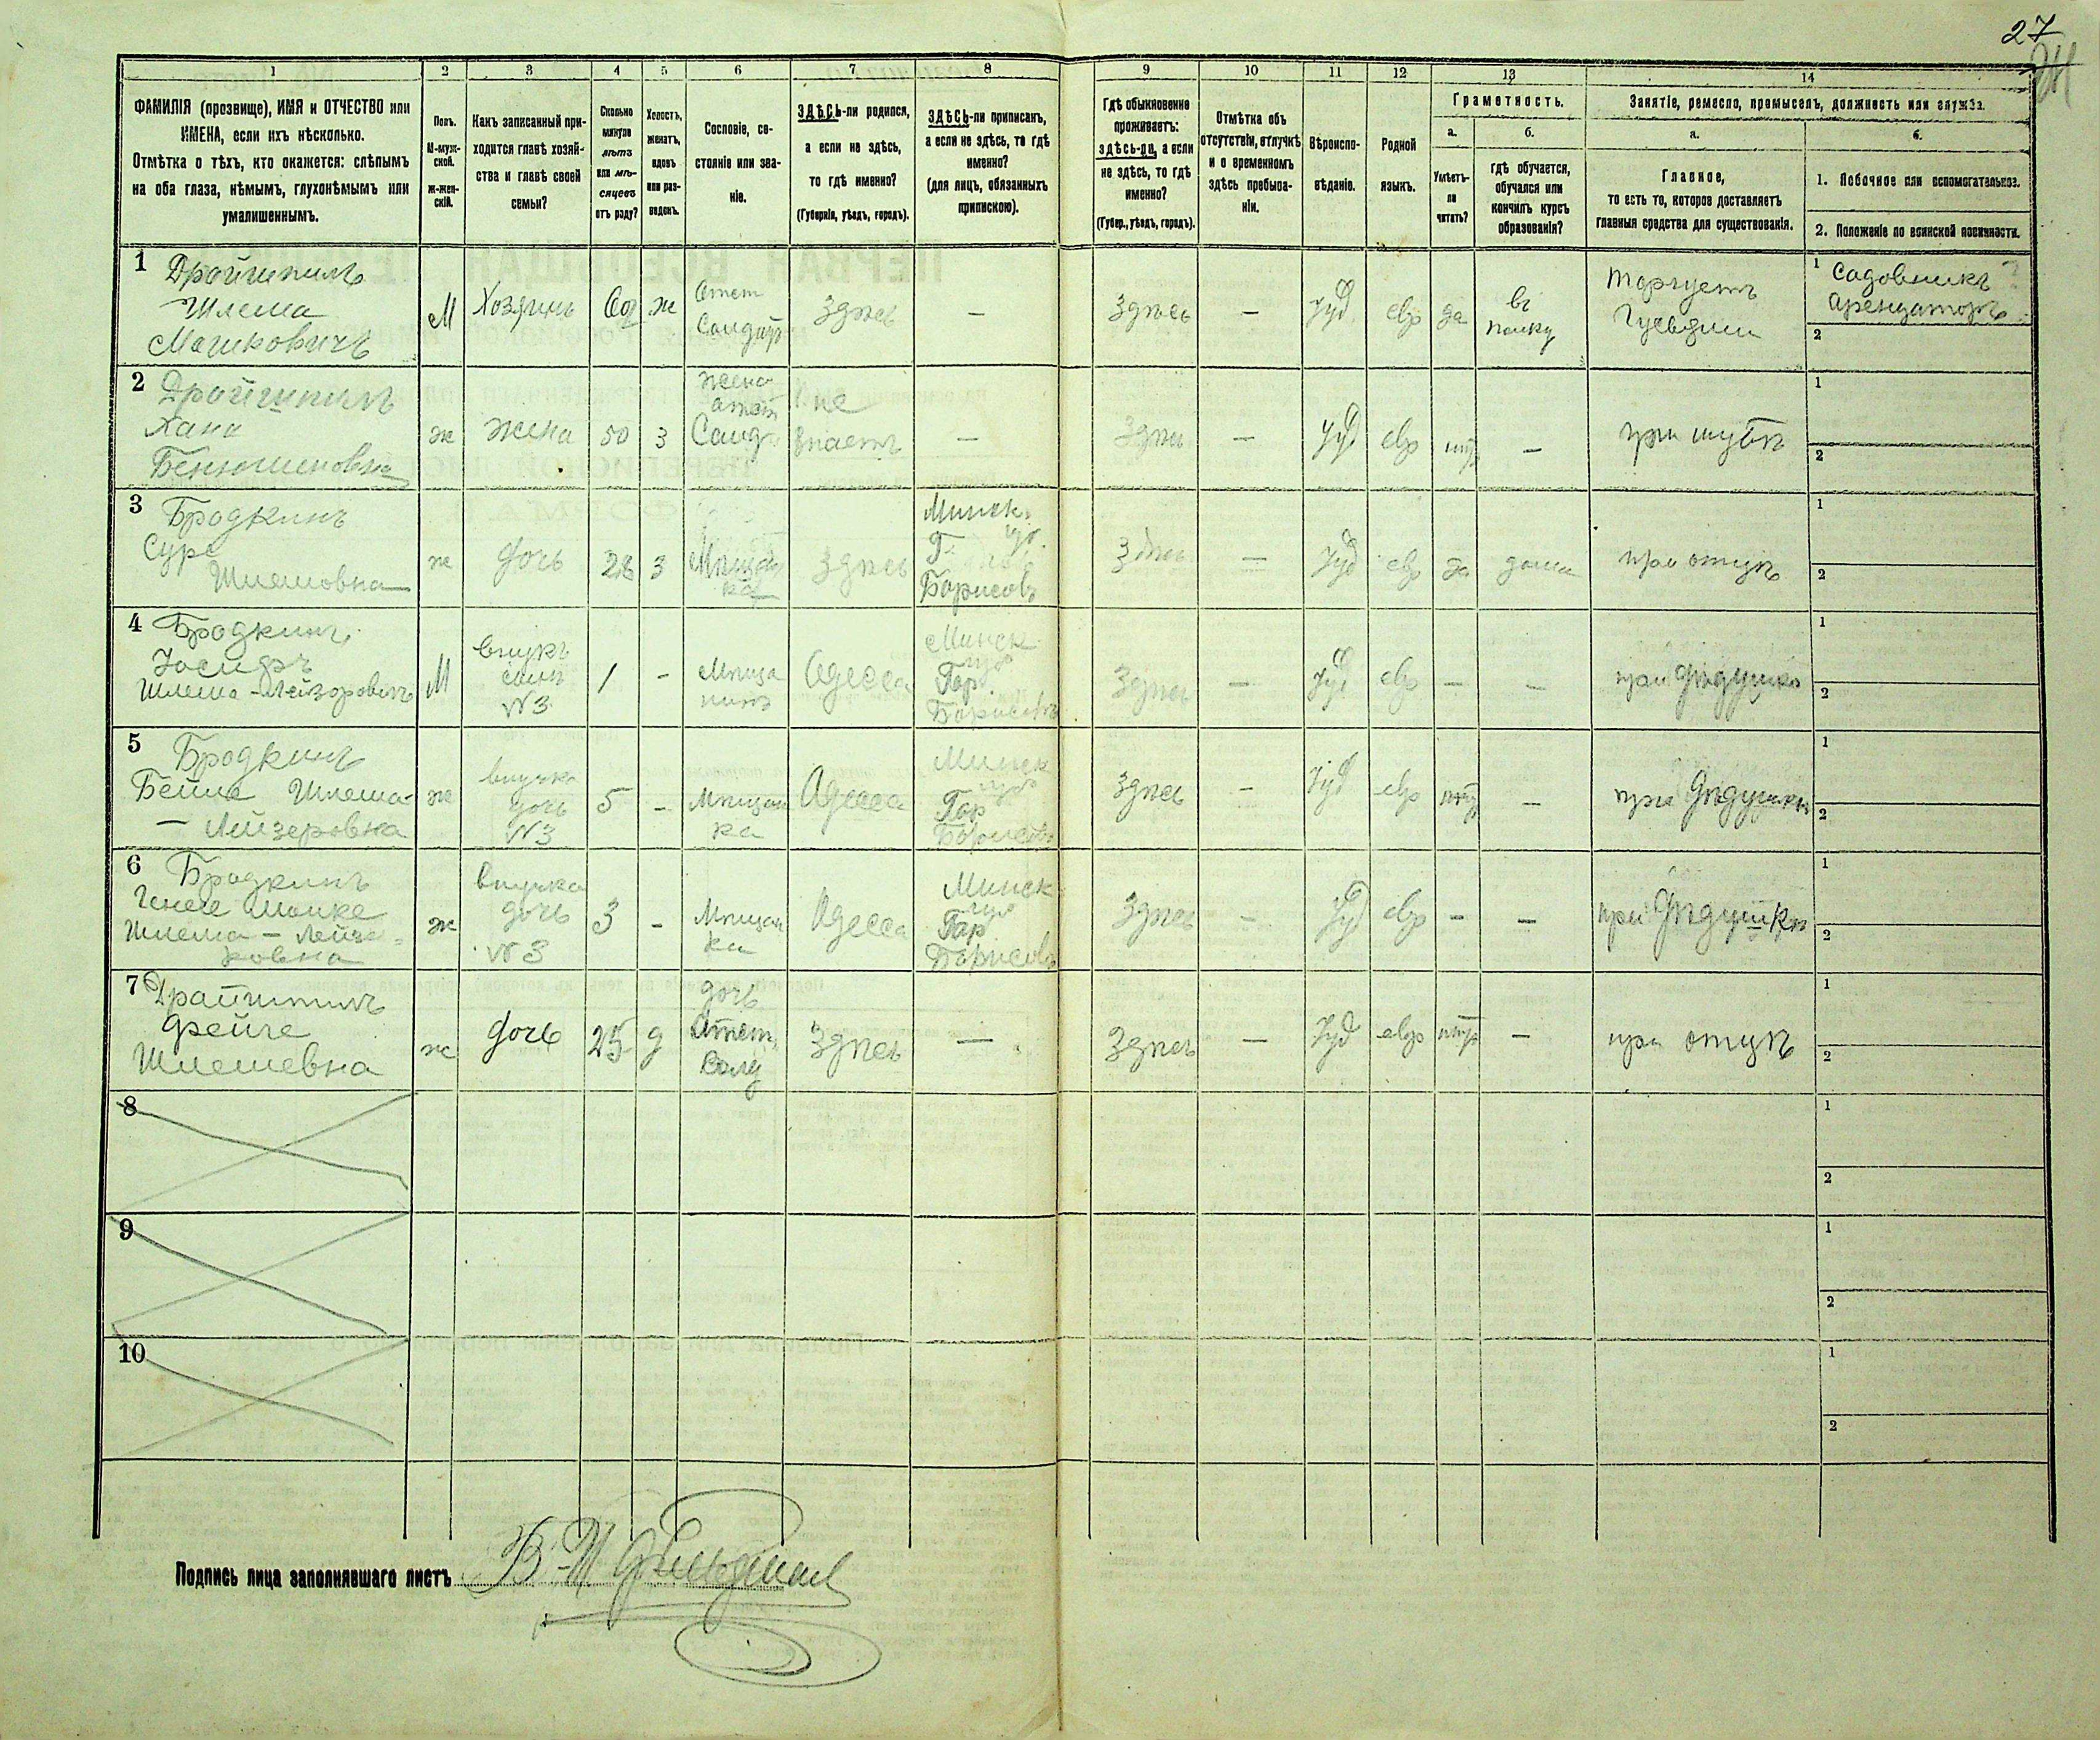 27
1 2 3 4 5 6 7 8 9 10 11 12 13 14
ФАМИЛІЯ (прозвище), ИМЯ и ОТЧЕСТВО или
ИМЕНА, если ихъ нѣсколько.
Отмѣтка о тѣхъ, кто окажется: слѣпымъ
на оба глаза, нѣмымъ, глухонѣмымъ или
умалишеннымъ.
Полъ.
М-муж-
ской.
ж-жен-
скій.
Какъ записанный при-
ходится главѣ хозяй-
ства и главѣ своей
семьи?
Сколько
минуло
лѣтъ
или мѣ-
сяцевъ
отъ роду?
Холостъ,
женатъ,
вдовъ
или раз-
веденъ.
Сословіе, со-
стояніе или зва-
ніе.
ЗДѢСЬ-ли родился,
а если не здѣсь,
то гдѣ именно?
(Губернія, уѣздъ, городъ).
ЗДѢСЬ-ли приписанъ,
а если не здѣсь, то гдѣ
именно?
(для лицъ, обязанныхъ
припискою).
Гдѣ обыкновенно
проживаетъ:
здѣсь-ли, а если
не здѣсь, то гдѣ
именно?
(Губер., уѣздъ, городъ).
Отмѣтка объ
отсутствіи, отлучкѣ
и о временномъ
здѣсь пребыва-
ніи.
Вѣроиспо-
вѣданіе.
Родной
языкъ.
Грамотность.
а.
Умѣетъ-
ли
читать?
б.
гдѣ обучается,
обучался или
кончилъ курсъ
образованія?
Занятіе, ремесло, промыселъ, должность или служба.
а.
Главное,
то есть то, которое доставляетъ
главныя средства для существованія.
б.
1. Побочное или вспомогательное.
2. Положеніе по воинской повинности.
1 Дройшпилъ
Шлема
Мошковичъ
М
Хозяинъ
60
ж
Отст
Солдат
Здѣсь
—
Здѣсь
—
Іуд
евр
да
въ
полку
Торгуетъ
1 Садовникъ
Арендаторъ
2
2 Дройшпилъ
Хана
ж
Жена
50
3
Жена
отст
Солд
не
знаетъ
—
Здѣсь
—
Іуд
евр
нѣт
—
при мужѣ
1
2
3 Бродкинъ
Сура
Шлемовна
ж
дочь
28
3
Мѣщан
ка
Здѣсь
Минск.
губ.
Г.
Борисовъ
Здѣсь
—
Іуд
евр
да
дома
при отцѣ
1
2
4 Бродкинъ
Іосифъ
Шлема-Лейзоровичъ
М
внукъ
сынъ
№3
1
-
Мѣща
нинъ
Одесса
Минск
губ
Гор.
Борисовъ
Здѣсь
—
Іуд
евр
—
—
при Дѣдушкѣ
1
2
5 Бродкинъ
Бейла Шлема-
— Лейзеровна
ж
внучка
дочь
№3
5
-
Мѣщан
ка
Одесса
Минск
губ
Гор
Борисовъ
Здѣсь
-
Іуд
евр
нѣт
—
при Дѣдушкѣ
1
2
6 Бродкинъ
Шлема-Лейзе=
ровна
ж
внучка
дочь
№3
3
-
Мѣщан
ка
Одесса
Минск
губ
Гор
Борисовъ
Здѣсь
—
Іуд
евр
-
—
при Дѣдушкѣ
1
2
7 Драйшпилъ
Фейге
Шлемевна
ж
дочь
25
д
дочь
Отст.
Солд
Здѣсь
—
Здѣсь
—
Іуд
евр
нѣт
—
при отцѣ
1
2
8
1
2
9
1
2
10
1
2
Подпись лица заполнявшаго листъ